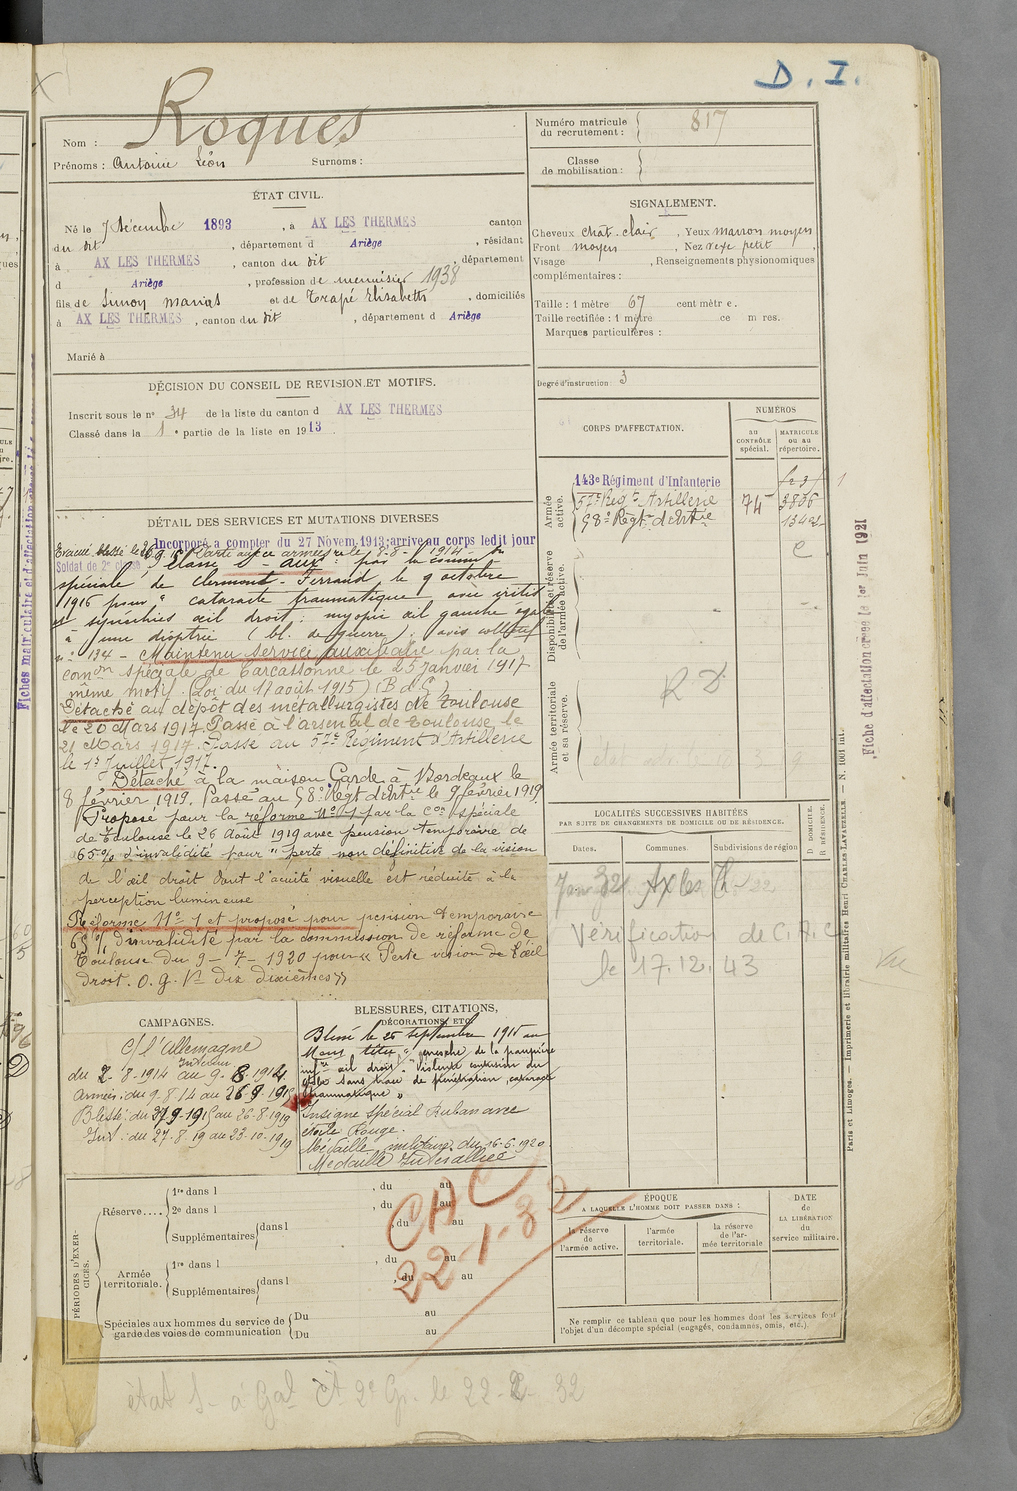 D. I.
Nom : Roques
Prénoms : Antoine Léon Surnoms :
Numéro matricule du recrutement : 817
Classe de mobilisation :
ÉTAT CIVIL.
Né le 7 décembre 1893, à AX LES THERMES canton
du dit, département d Ariège, résidant
à AX LES THERMES, canton du dit, département
d Ariège, profession de menuisier 1938
fils de et de Elisabeth, domiciliés
à AX LES THERMES, canton du dit, département d Ariège
Marié à
SIGNALEMENT.
Cheveux chât. clair, Yeux marron moyen
Front moyen, Nez petit,
Visage, Renseignements physionomiques
complémentaires :
Taille : 1 mètre 67 centimètre.
Taille rectifiée : 1 mètre ce m res.
Marques particulières :
Degré d'instruction : 3
DÉCISION DU CONSEIL DE REVISION ET MOTIFS.
Inscrit sous le n° 34 de la liste du canton d AX LES THERMES
Classé dans la 1e partie de la liste en 1913
CORPS D'AFFECTATION.
NUMÉROS
au CONTRÔLE spécial.
MATRICULE ou au répertoire.
Armée active.
143e Régiment d'Infanterie
57e Régt Artillerie 74 3806
98e Régt d'Artie
Disponibilité et réserve de l'armée active.
Armée territoriale et sa réserve.
R. D.
DÉTAIL DES SERVICES ET MUTATIONS DIVERSES
Incorporé a compter du 27 Novem. 1913; arrivé au corps ledit jour
Soldat de 2e classe
Evacué, blessé le 26.9.15
spéciale de Clermont-Ferrand, le 9 octobre
1916 pour " cataracte traumatique avec iritis
et synéchies œil droit; myopie œil gauche égale
à une dioptrie (bl. de guerre); avis collectif
n° 134 - Maintenu service auxiliaire par la
comon spéciale de Carcassonne le 25 janvier 1917
même motif (Loi du 17 août 1915) (B d G)
Détaché au dépôt des métallurgistes de Toulouse
le 20 Mars 1917. Passé à l'arsenal de Toulouse le
21 Mars 1917. Passé au 57e Régiment d'Artillerie
le 1er Juillet 1917.
Détaché à la maison Garde à Bordeaux le
8 février 1919. Passé au 98e Régt d'Artie le 9 février 1919
Proposé pour la réforme N° 1 par la Con spéciale
de Toulouse le 26 août 1919 avec pension temporaire de
65 % d'invalidité pour " perte non définitive de la vision
de l'œil droit dont l'acuité visuelle est réduite à la
perception lumineuse
Réforme N° 1 et proposé pour pension temporaire
65 % d'invalidité par la commission de réforme de
Toulouse du 9-7-1920 pour « Perte vision de l'œil
droit. O. g. V= dix dixièmes »
LOCALITÉS SUCCESSIVES HABITÉES
PAR SUITE DE CHANGEMENTS DE DOMICILE OU DE RÉSIDENCE.
Dates. Communes. Subdivisions de région
D. DOMICILE. R. RÉSIDENCE.
Jan 32 Ax les Th
Vérification de C. A. C
le 17.12.43
Vu
CAMPAGNES.
c/ l'Allemagne
Intérieur
du 2.8.1914 au 9.8.1914
Armées : du 9.8.14 au 26.9.1915
Blessé : du 27.9.1915 au 26.8.1919
Int. : du 27.8.19 au 23.10.1919
BLESSURES, CITATIONS,
DÉCORATIONS, ETC.
Blessé le 25 septembre 1915 au
Insigne spécial Ruban avec
étoile Rouge.
Médaille militaire du 16-6.1920
Médaille Interalliée
PÉRIODES D'EXERCICES.
Réserve....
1re dans l, du au
2e dans l, du au
Supplémentaires dans l, du au
Armée territoriale.
1re dans l, du au
Supplémentaires dans l, du au
Spéciales aux hommes du service de garde des voies de communication
Du au
Du au
CAC
22-1-32
ÉPOQUE
A LAQUELLE L'HOMME DOIT PASSER DANS :
la réserve de l'armée active.
l'armée territoriale.
la réserve de l'armée territoriale
DATE de LA LIBÉRATION du service militaire.
Ne remplir ce tableau que pour les hommes dont les services font
l'objet d'un décompte spécial (engagés, condamnés, omis, etc.).
Paris et Limoges. — Imprimerie et librairie militaires Henri CHARLES-LAVAUZELLE. — N. 1001 int.
Fiche d'affectation créée le 1er Juin 1921